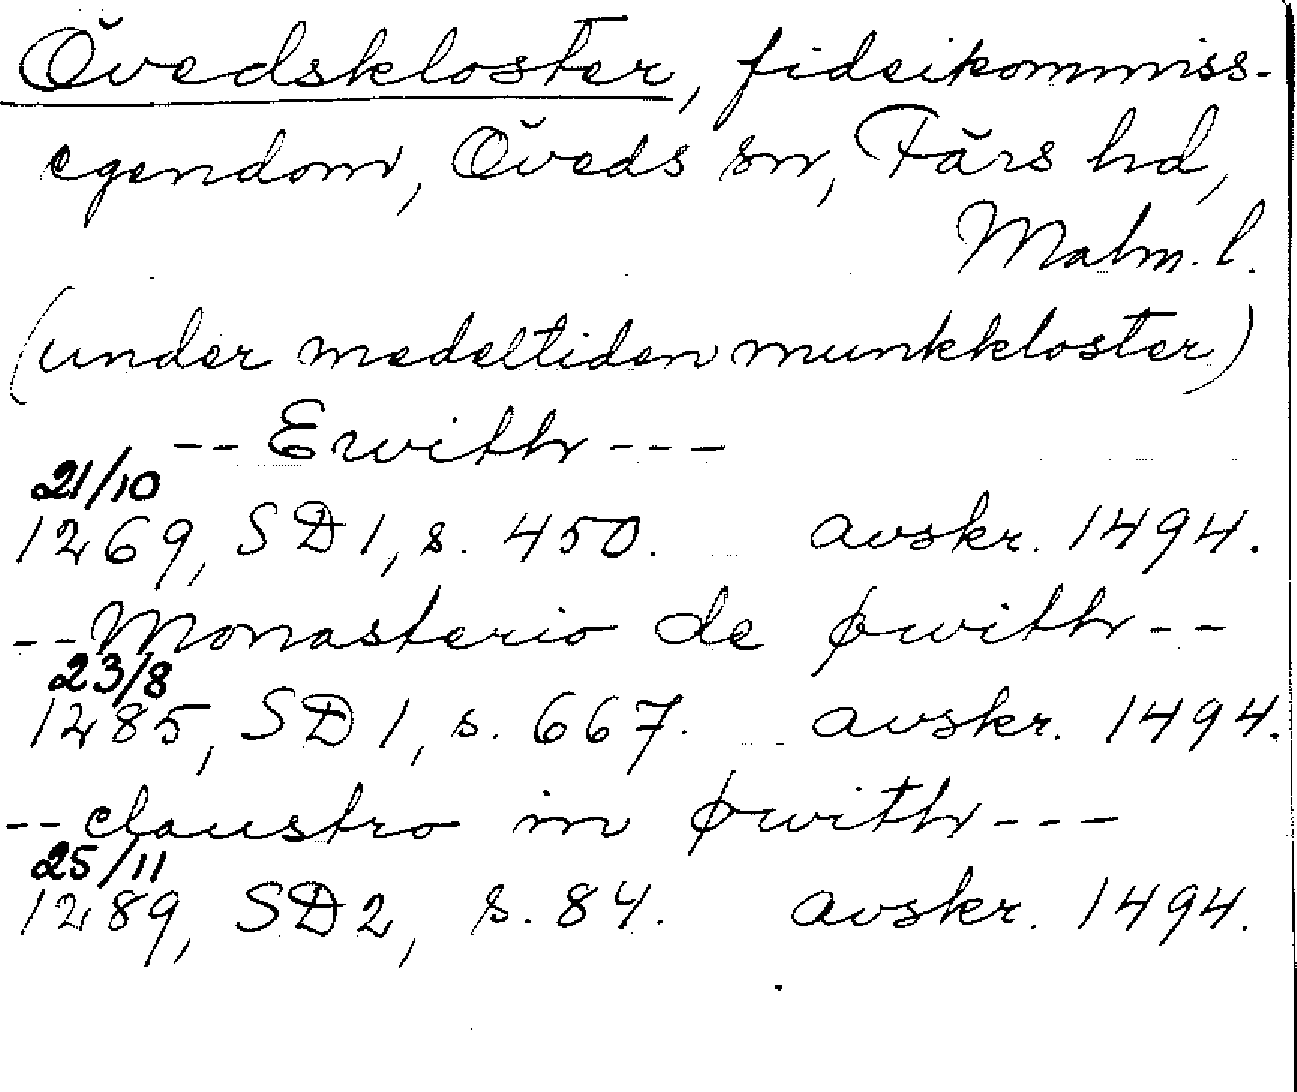 Övedskloster, fideikommiss-
egendom, Öveds sn, Färs hd,
Malm. l.
(under medeltiden munkkloster)
-- Erwith ---
21/10
1269, SD 1, s. 450. avskr. 1494.
-- Monasterio de øwith --
23/8
1285, SD 1, s. 667. avskr. 1494.
-- claustro in øwith ---
25/11
1289, SD 2, s. 84. avskr. 1494.